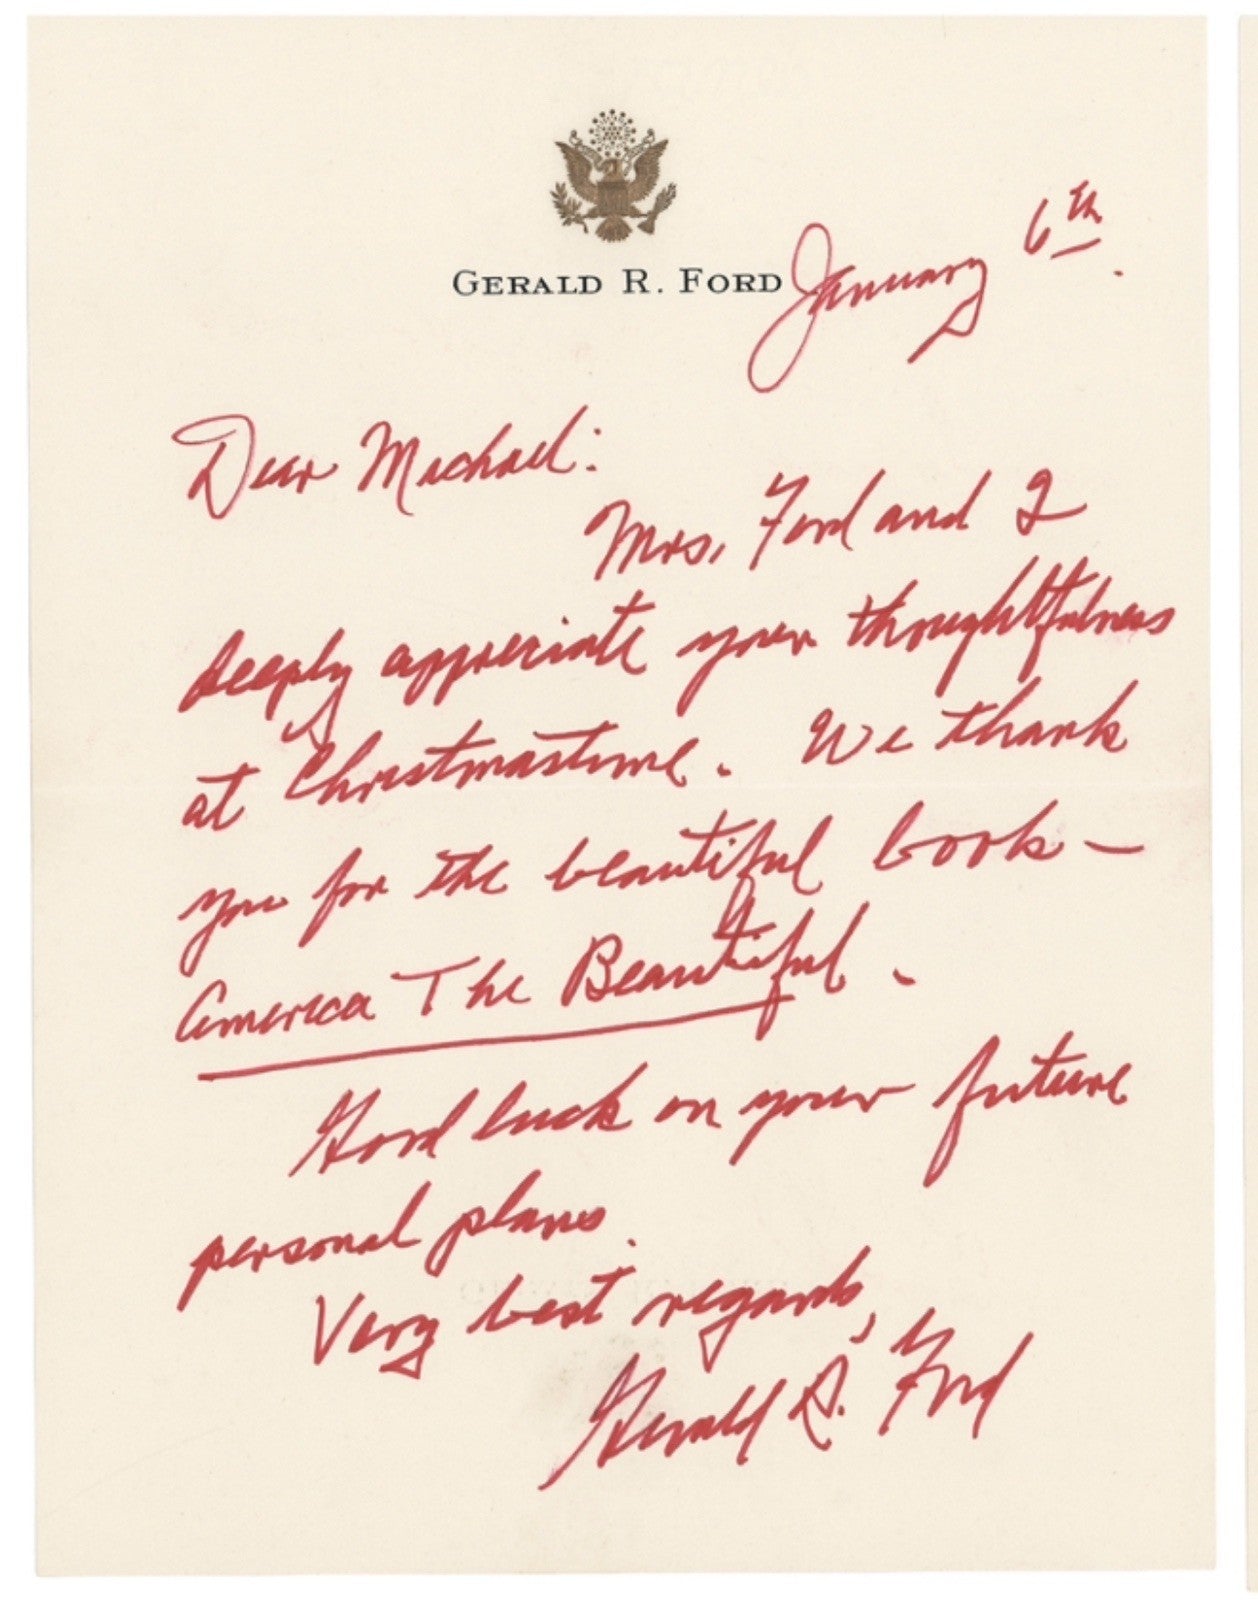 GERALD R. FORD
January 6th.
Dear Michael:
Mrs. Ford and I
deeply appreciate your thoughtfulness
at Christmastime. We thank
you for the beautiful book –
America The Beautiful.
Good luck on your future
personal plans.
Very best regards,
Gerald R. Ford